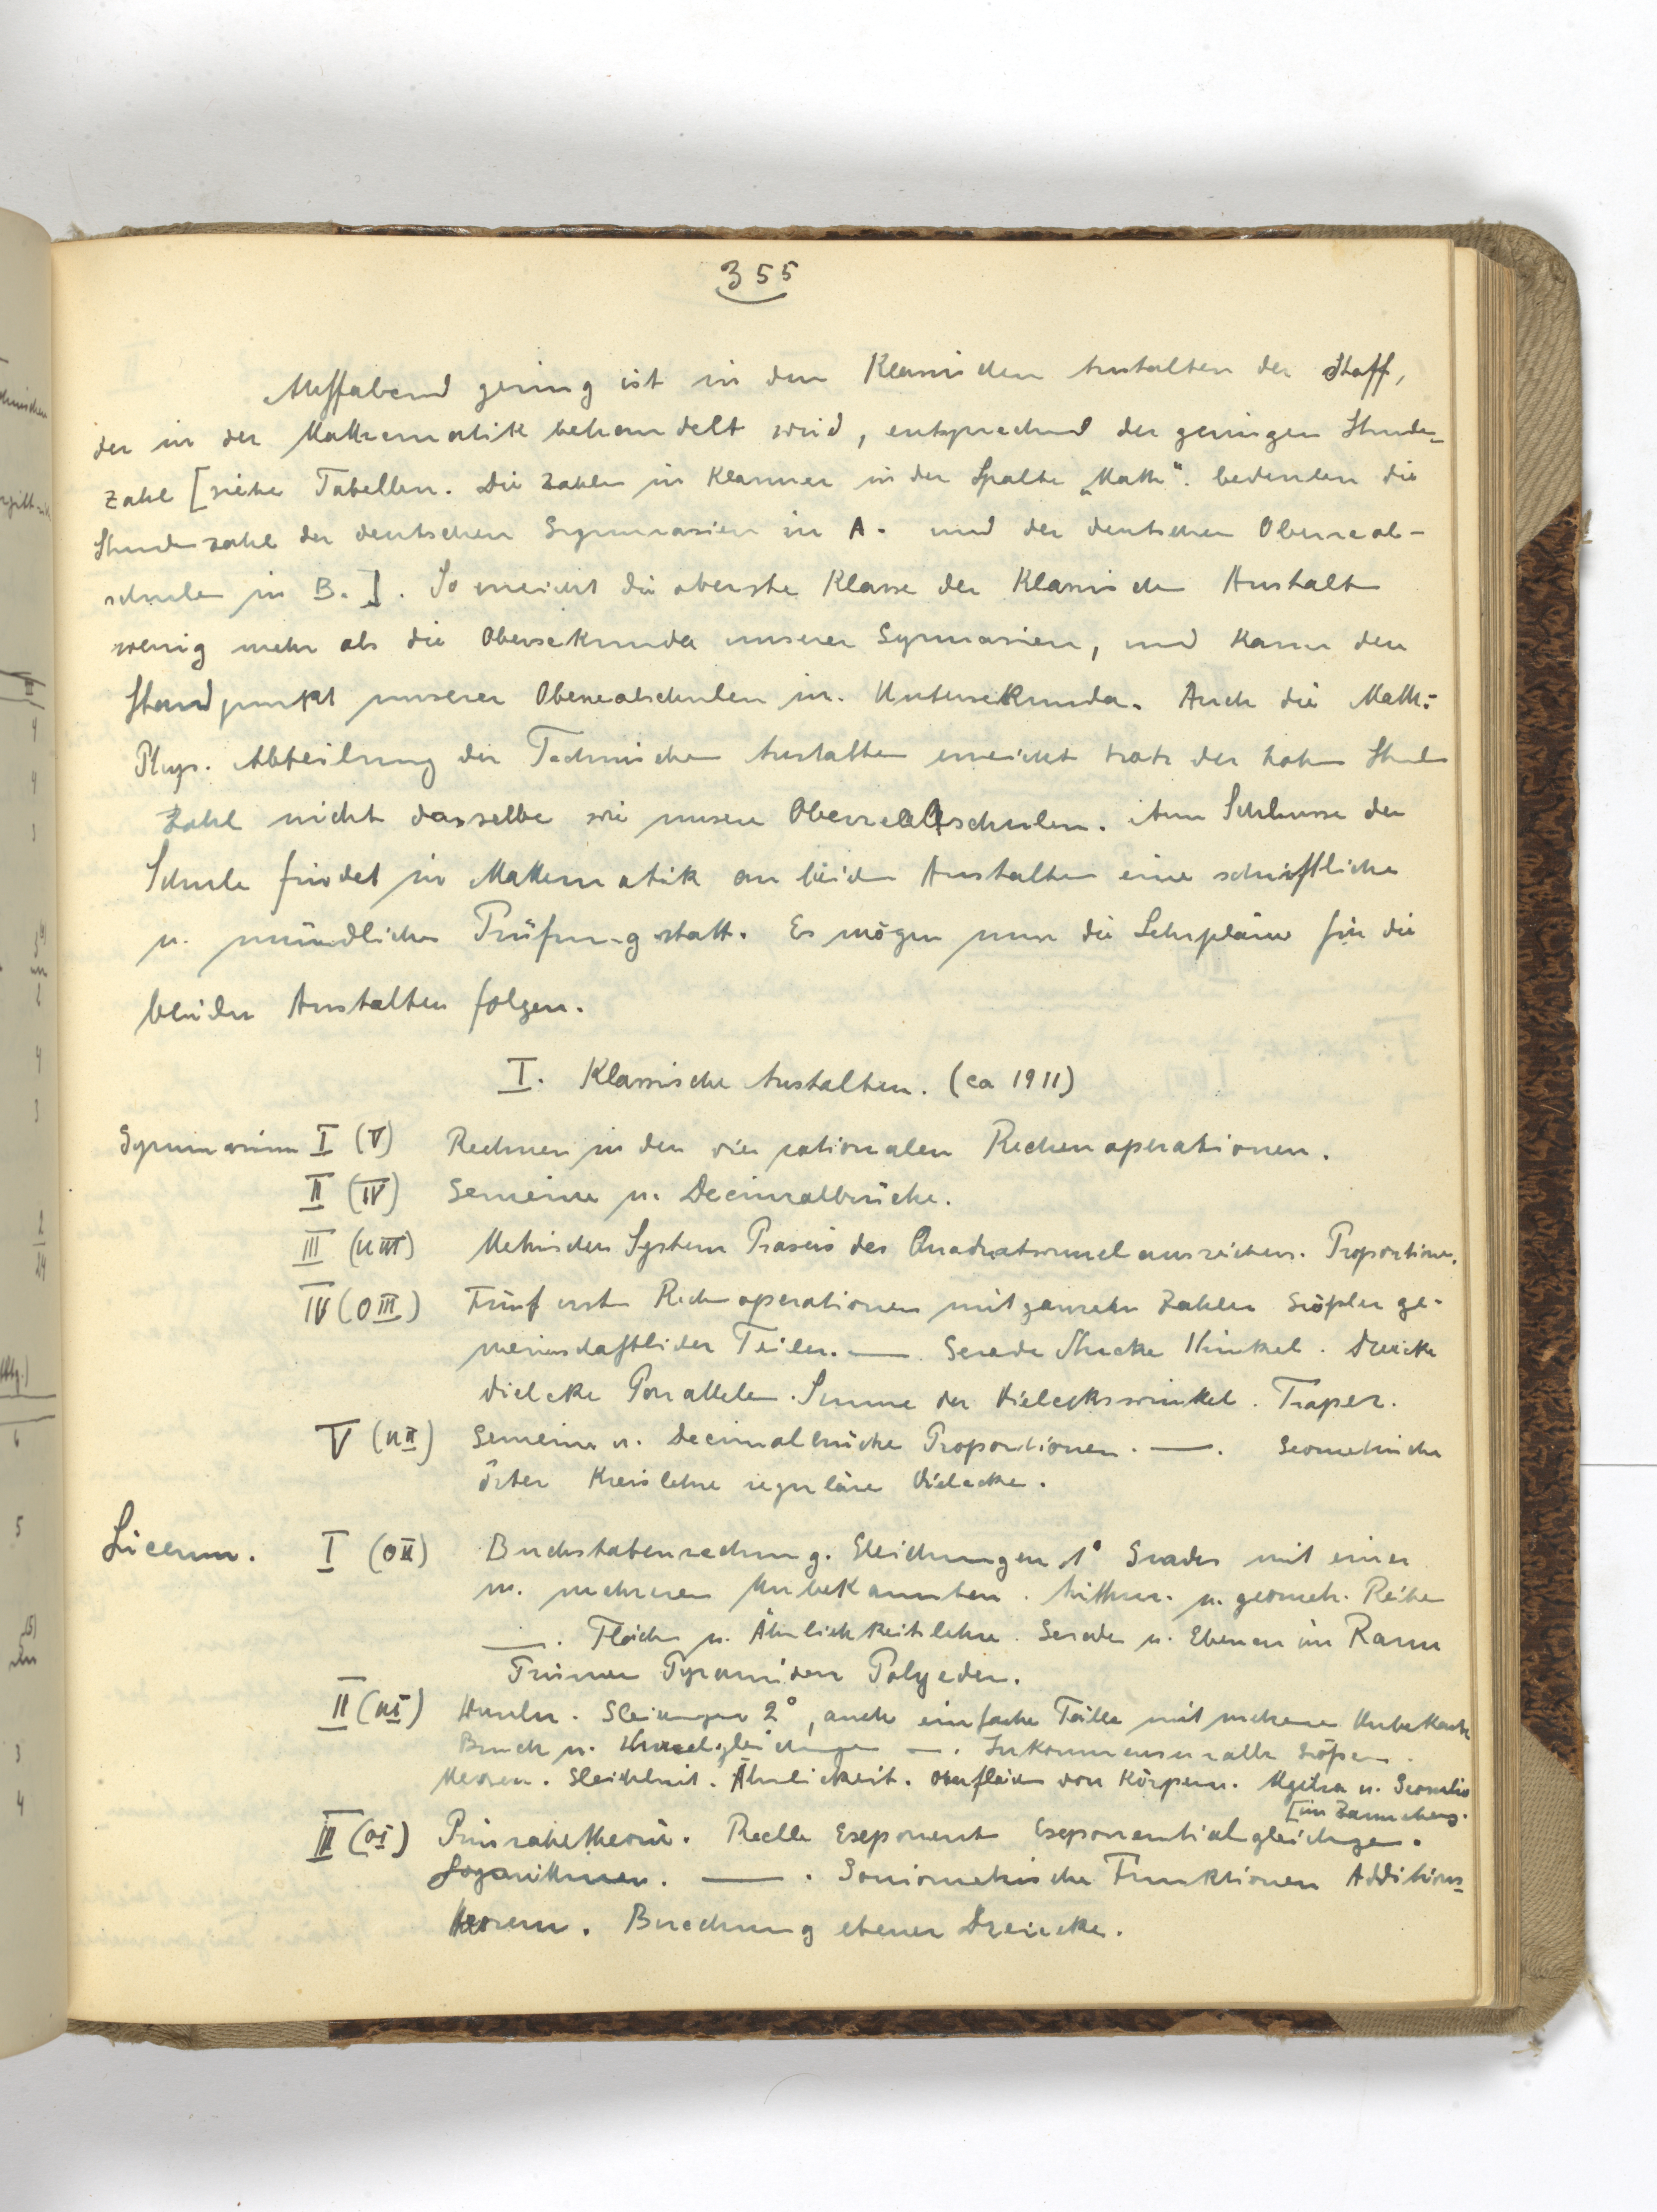 355
Auffallend gering ist in den Klassischen Anstalten der Stoff,
der in der Mathematik behandelt wird, entsprechend der geringen Stunden-
zahl [siehe Tabellen. Die Zahlen in Klammer in der Spalte „Math“. bedeuten die
Stundenzahl der deutschen Gymnasien in A. und der deutschen Oberreal-
schulen in B.]. So erreicht die oberste Klasse der Klassischen Anstalten
wenig mehr als die Obersekunda unserer Gymnasien, und kaum den
Standpunkt unserer Oberrealschulen in Untersekunda. Auch die Math.-
Phys. Abteilung der Technischen Anstalten erreicht trotz der hohen Stunden
Zahl nicht dasselbe wie unsere Oberrealschulen. Am Schlusse der
Schule findet in Mathematik an beiden Anstalten eine schriftliche
u. mündliche Prüfung statt. Es mögen nun die Lehrpläne für die
beiden Anstalten folgen.
I. Klassische Anstalten. (ca 1911)
Gymnasium I (V) Rechnen in den vier rationalen Rechenoperationen.
II (IV) Gemeine u. Decimalbrüche.
III (UIII) Metrisches System Praxis des Quadratwurzelausziehens. Proportionen.
IV (OIII) Fünf erste Rechenoperationen mit ganzen Zahlen Größter ge-
meinschaftlicher Teiler. — . Gerade Strecke Winkel. Dreiecke
Vielecke Parallelen. Summe der Vieleckswinkel. Trapez.
V (UII) Gemeine u. Decimalbrüche Proportionen. — . Geometrische
Örter Kreislehre reguläre Vielecke.
Liceum. I (OII) Buchstabenrechnung. Gleichungen 1° Grades mit einer
u. mehreren Unbekannten. Arithm. u. geometr. Reihen
— . Flächen u. Ähnlichkeitslehre. Gerade u. Ebenen im Raum
Prismen Pyramiden Polyeder.
II (UI) Wurzeln. Gleichungen 2°, auch einfache Fälle mit mehreren Unbekannten
Bruch u. Wurzelgleichungen — . Inkommensurable Größen.
Messen. Gleichheit. Ähnlichkeit. Oberflächen von Körpern. Algebra u. Geometrie
[im Zusammenhang.
III (OI) Prinzahltheorie. Reelle Exponenten Exponentialgleichungen.
Logarithmen. — . Goniometrische Funktionen Additions-
theorem. Berechnung ebener Dreiecke.